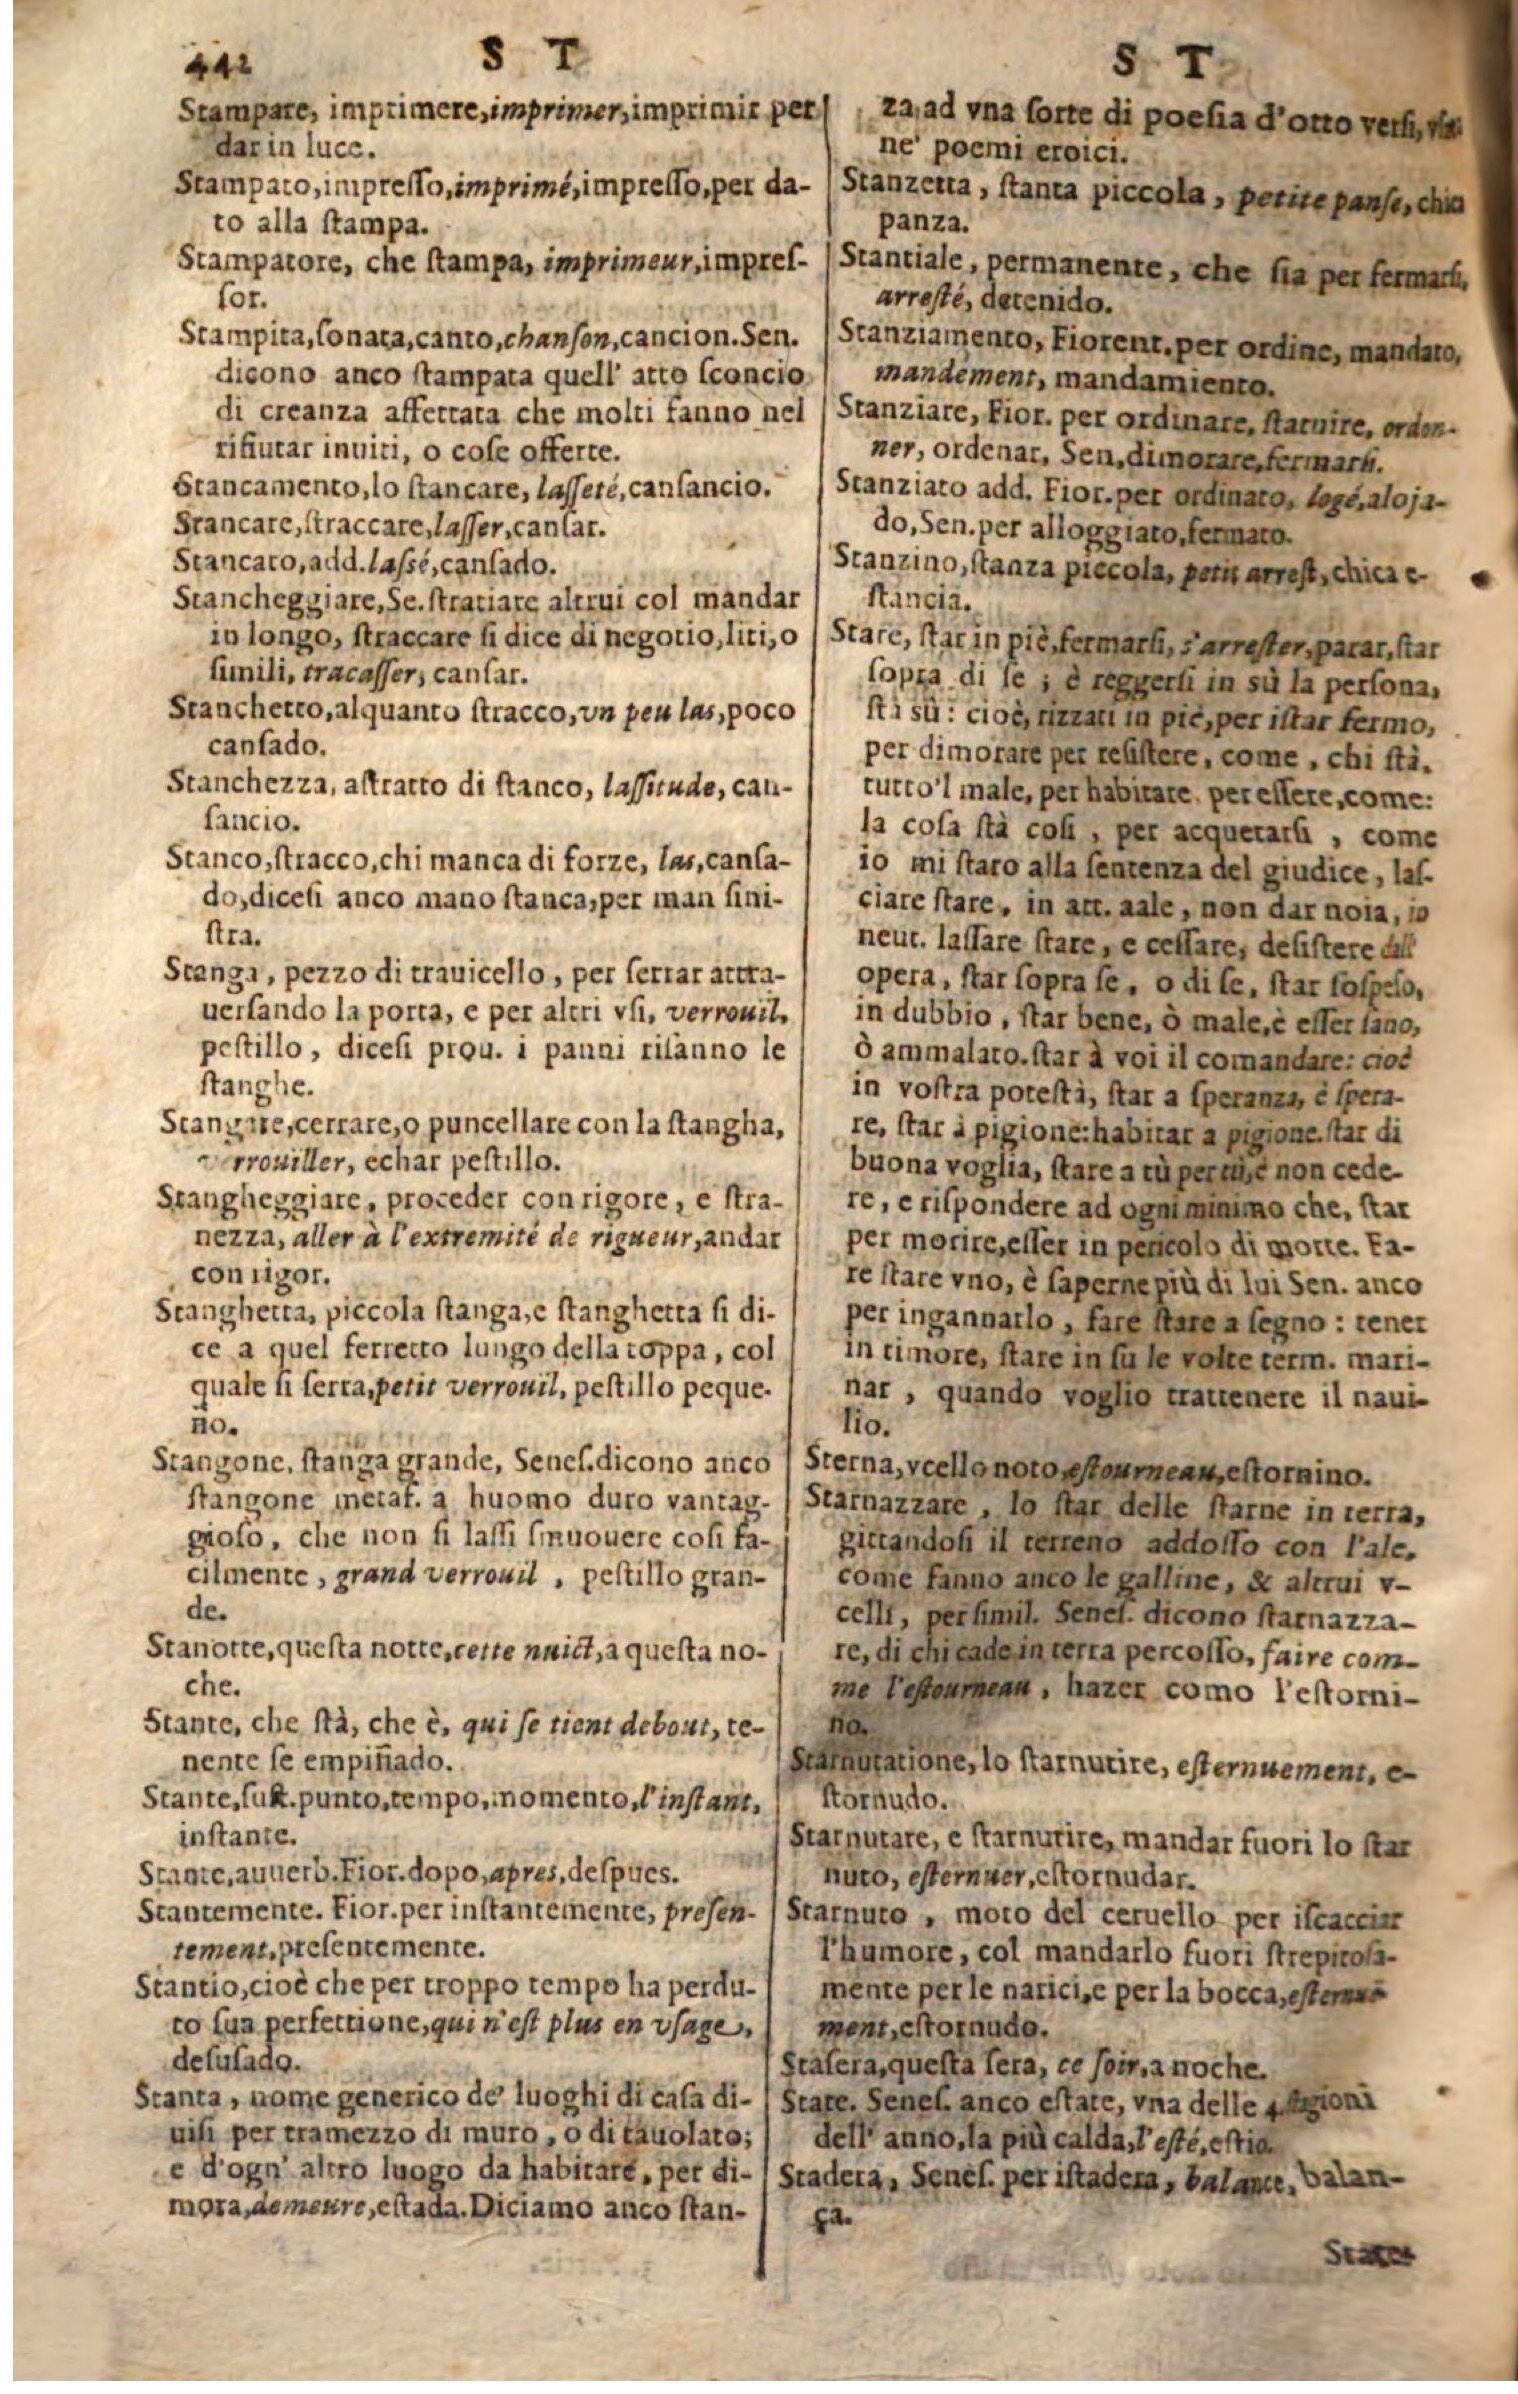 442
S T
Stampare, imprimere, imprimer, imprimir per
dar in luce.
Stampato, impreſſo, imprimé, impreſſo, per da-
to alla ſtampa.
Stampatore, che ſtampa, imprimeur, impreſ-
ſor.
Stampita, ſonata, canto, chanſon, cancion. Sen.
dicono anco ſtampata quell' atto ſconcio
di creanza affettata che molti fanno nel
rifiutar inuiti, o coſe offerte.
Stancamento, lo ſtancare, laſſeté, canſancio.
Stancare, ſtraccare, laſſer, canſar.
Stancato, add. laſsé, canſado.
Stancheggiare, Se. ſtratiare altrui col mandar
in longo, ſtraccare ſi dice di negotio, liti, o
ſimili, tracaſſer, canſar.
Stanchetto, alquanto ſtracco, vn peu las, poco
canſado.
Stanchezza, aſtratto di ſtanco, laſſitude, can-
ſancio.
Stanco, ſtracco, chi manca di forze, las, canſa-
do, diceſi anco mano ſtanca, per man ſini-
ſtra.
Stanga, pezzo di trauicello, per ſerrar attra-
uerſando la porta, e per altri vſi, verrouil,
peſtillo, diceſi prou. i panni riſanno le
ſtanghe.
Stangare, cerrare, o puncellare con la ſtangha,
rrouiller, echar peſtillo.
Stangheggiare, proceder con rigore, e ſtra-
nezza, aller à l'extremité de rigueur, andar
con rigor.
Stanghetta, piccola ſtanga, e ſtanghetta ſi di-
ce a quel ferretto lungo della toppa, col
quale ſi ſerra, petit verrouil, peſtillo peque-
ño.
Stangone, ſtanga grande, Seneſ. dicono anco
ſtangone metaf. a huomo duro vantag-
gioſo, che non ſi laſſi ſmuouere coſi fa-
cilmente, grand verrouil, peſtillo gran-
de.
Stanotte, queſta notte, cette nuict, a queſta no-
che.
Stante, che ſtà, che è, qui ſe tient debout, te-
nente ſe empiñado.
Stante, ſuſt. punto, tempo, momento, l'inſtant,
inſtante.
Stante, auuerb. Fior. dopo, apres, deſpues.
Stantemente. Fior. per inſtantemente, preſen-
tement, preſentemente.
Stantio, cioè che per troppo tempo ha perdu-
to ſua perfettione, qui n'eſt plus en vſage,
deſuſado.
Stanta, nome generico de' luoghi di caſa di-
uiſi per tramezzo di muro, o di tauolato;
e d'ogn' altro luogo da habitare, per di-
mora, demeure, eſtada. Diciamo anco ſtan-
S T
za, ad vna ſorte di poeſia d'otto verſi,
ne' poemi eroici.
Stanzetta, ſtanta piccola, petite panſe, chica
panza.
Stantiale, permanente, che ſia per fermarſi,
arreſté, detenido.
Stanziamento, Fiorent. per ordine, mandato,
mandement, mandamiento.
Stanziare, Fior. per ordinare, ſtatuire, ordon-
ner, ordenar, Sen, dimorare, fermarſi.
Stanziato add. Fior. per ordinato, logé, aloja-
do, Sen. per alloggiato, fermato.
Stanzino, ſtanza piccola, petit arreſt, chica e-
ſtancia.
Stare, ſtar in piè, fermarſi, s'arreſter, parar, ſtar
ſopra di ſe; è reggerſi in sù la perſona,
ſtà sù: cioè, rizzati in piè, per iſtar fermo,
per dimorare per reſiſtere, come, chi ſtà,
tutto'l male, per habitare. per eſſere, come:
la coſa ſtà coſi, per acquetarſi, come
io mi ſtaro alla ſentenza del giudice, laſ-
ciare ſtare, in att. aale, non dar noia, in
neut. laſſare ſtare, e ceſſare, deſiſtere dall'
opera, ſtar ſopra ſe, o di ſe, ſtar ſoſpeſo,
in dubbio, ſtar bene, ò male, è eſſer ſano,
ò ammalato. ſtar à voi il comandare: cioè
in voſtra poteſtà, ſtar a ſperanza, è ſpera-
re, ſtar à pigione: habitar a pigione. ſtar di
buona voglia, ſtare a tù per tù, è non cede-
re, e riſpondere ad ogni minimo che, ſtar
per morire, eſſer in pericolo di morte. Fa-
re ſtare vno, è ſaperne più di lui Sen. anco
per ingannarlo, fare ſtare a ſegno: tener
in timore, ſtare in ſu le volte term. mari-
nar, quando voglio trattenere il naui-
lio.
Sterna, vcello noto, eſtourneau, eſtornino.
Starnazzare, lo ſtar delle ſtarne in terra,
gittandoſi il terreno addoſſo con l'ale,
come fanno anco le galline, & altrui v-
celli, per ſimil. Seneſ. dicono ſtarnazza-
re, di chi cade in terra percoſſo, faire com-
me l'eſtourneau, hazer como l'eſtorni-
no.
Starnutatione, lo ſtarnutire, eſternuement, e-
ſtornudo.
Starnutare, e ſtarnutire, mandar fuori lo ſtar
nuto, eſternuer, eſtornudar.
Starnuto, moto del ceruello per iſcacciar
l'humore, col mandarlo fuori ſtrepitoſa-
mente per le narici, e per la bocca, eſternue
ment, eſtornudo.
Staſera, queſta ſera, ce ſoir, a noche.
State. Seneſ. anco eſtate, vna delle 4. ſtagioni
dell' anno, la più calda, l'eſté, eſtio.
Stadera, Seneſ. per iſtadera, balance, balan-
ça.